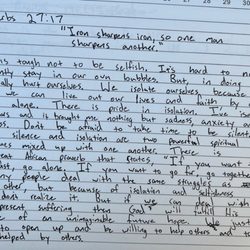 28 29 30
rbs 27:17
"Iron sharpens iron, so one man
sharpens another."
is tough not to be selfish. It's hard to
ntly stay in our own bubbles. But, in doing
ally hurt ourselves. We isolate ourselves, because
we can live out our lives and faith by
alone. There is pride in isolation. I've
ws and is brought me nothing but sadness, anxiety and
s. Don't be afraid to take time to be silent
silence and isolation are two powerful spiritual
mes mixed up with one another. There is
reat African proverb that states, "If you want
st, go alone. If you want to go far, go together
people deal with the same struggles as
other, but because of isolation and selfishness
don't realize it. But if we can deal with
present suffering then God will fulfill his
e of an unimaginable future hope. We
to open up and be willing to help others and
helped by others.